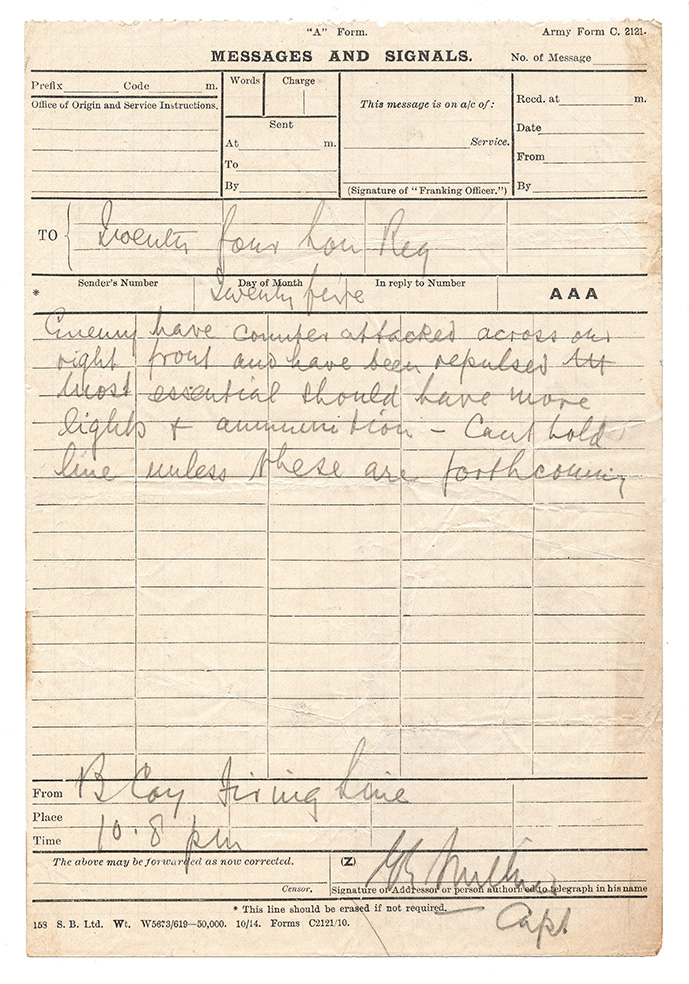 "A" Form.
Army Form C. 2121.
MESSAGES AND SIGNALS.
No. of Message
Prefix Code m.
Office of Origin and Service Instructions.
Words Charge
Sent
At m.
To
By
This message is on a/c of:
Service.
(Signature of "Franking Officer.")
Recd. at m.
Date
From
By
TO { Twenty four Lon Reg
Sender's Number
Day of Month
In reply to Number
* Twenty five
AAA
Enemy have counter attacked across our
right front and have been repulsed
most essential should have more
lights + ammunition - Cant hold
line unless these are forthcoming
From B Coy Firing Line
Place
Time 10.8 pm
The above may be forwarded as now corrected.
(Z)
Censor.
Signature of Addressor or person authorised to telegraph in his name
* This line should be erased if not required.
Capt
153 S. B. Ltd. Wt. W5673/619—50,000. 10/14. Forms C2121/10.